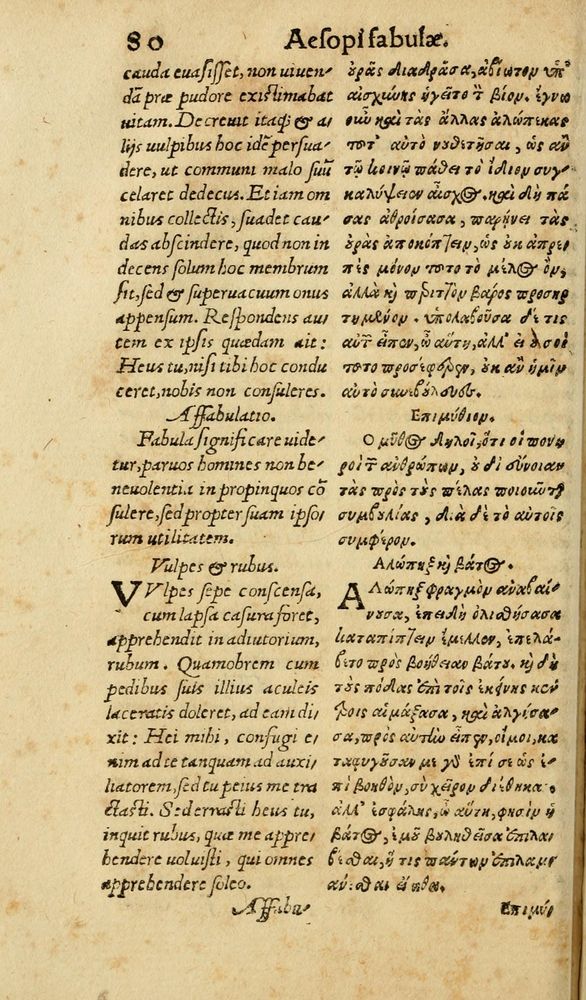 80 Aesopi fabulæ.
cauda euasisset, non uiuen⸗
dā præ pudore existimabat
uitam. Decreuit itaq; & a⸗
lijs uulpibus hoc idē persua⸗
dere, ut communi malo suū
celaret dedecus. Et iam om
nibus collectis, suadet cau⸗
das abscindere, quod non in
decens solum hoc membrum
sit, sed & superuacuum onus
appensum. Respondens au⸗
tem ex ipsis quædam ait:
Heus tu, nisi tibi hoc condu
ceret, nobis non consuleres.
Affabulatio.
Fabula significare uide⸗
tur, paruos homines non be⸗
neuolentia in propinquos cō
sulere, sed propter suam ipso⸗
rum utilitatem.
Vulpes & rubus.
VVlpes sepe conscensa,
cum lapsa casura foret,
apprehendit in adiutorium,
rubum. Quamobrem cum
pedibus suis illius aculeis
laceratis doleret, ad eam di⸗
xit: Hei mihi, confugi e⸗
nim ad te tanquam ad auxi⸗
liatorem, sed tu peius me tra
ctasti. Sed errasti heus tu,
inquit rubus, quæ me appre⸗
hendere uoluisti, qui omnes
apprehendere soleo.
Affabu⸗
οὐρᾶς διαδρᾶσα, ἀβίωτον ὑπ'
αἰσχύνης ἡγεῖτο τ̄ βίον. ἔγνω
οὖν καὶ τὰς ἄλλας ἀλώπεκας
τοτ' αὐτὸ νουθετῆσαι, ὡς ἂν
τῷ κοινῷ πάθει τὸ ἴδιον συγ⸗
καλύψειεν αἶσχος. καὶ δὴ πά
σας ἀθροίσασα, παρῄνει τὰς
οὐρὰς ἀποκόπτειν, ὡς οὐκ ἀπρε⸗
πὲς μόνον τοῦτο τὸ μέλος ὂν,
ἀλλὰ καὶ περιττὸν βάρος προσηρ
τημένον. ὑπολαβοῦσα δέ τις
αὐτῶν εἶπεν, ὦ αὕτη, ἀλλ' εἰ μή σοι
τοῦτο προσέφερεν, οὐκ ἂν ἡμῖν
αὐτὸ συνεβούλευες.
Ἐπιμύθιον.
Ὁ μῦθος δηλοῖ, ὅτι οἱ πονη⸗
ροὶ τῶν ἀνθρώπων, οὐ δι' εὔνοιαν
τὰς πρὸς τοὺς πέλας ποιοῦνται
συμβουλίας, διὰ δὲ τὸ αὐτοῖς
συμφέρον.
Ἀλώπηξ καὶ βάτος.
Ἀλώπηξ φραγμὸν ἀναβαί⸗
νουσα, ἐπειδὴ ὀλισθήσασα
καταπίπτειν ἔμελλεν, ἐπελά⸗
βετο πρὸς βοήθειαν βάτου. καὶ δὴ
τοὺς πόδας ἐπὶ τοῖς ἐκείνης κέν
τροις αἱμάξασα, καὶ ἀλγήσα⸗
σα, πρὸς αὐτὴν εἶπεν, οἴμοι, κα
ταφυγοῦσαν με γὰρ ἐπί σε ὡς ἐ⸗
πὶ βοηθὸν, σὺ χεῖρον διέθηκας.
ἀλλ' ἐσφάλης, ὦ αὕτη, φησὶν ἡ
βάτος, ἐμοῦ βουληθεῖσα ἐπιλα⸗
βέσθαι, ἥ τις πάντων ἐπιλαμβ
άνεσθαι εἴωθα.
Ἐπιμύθ